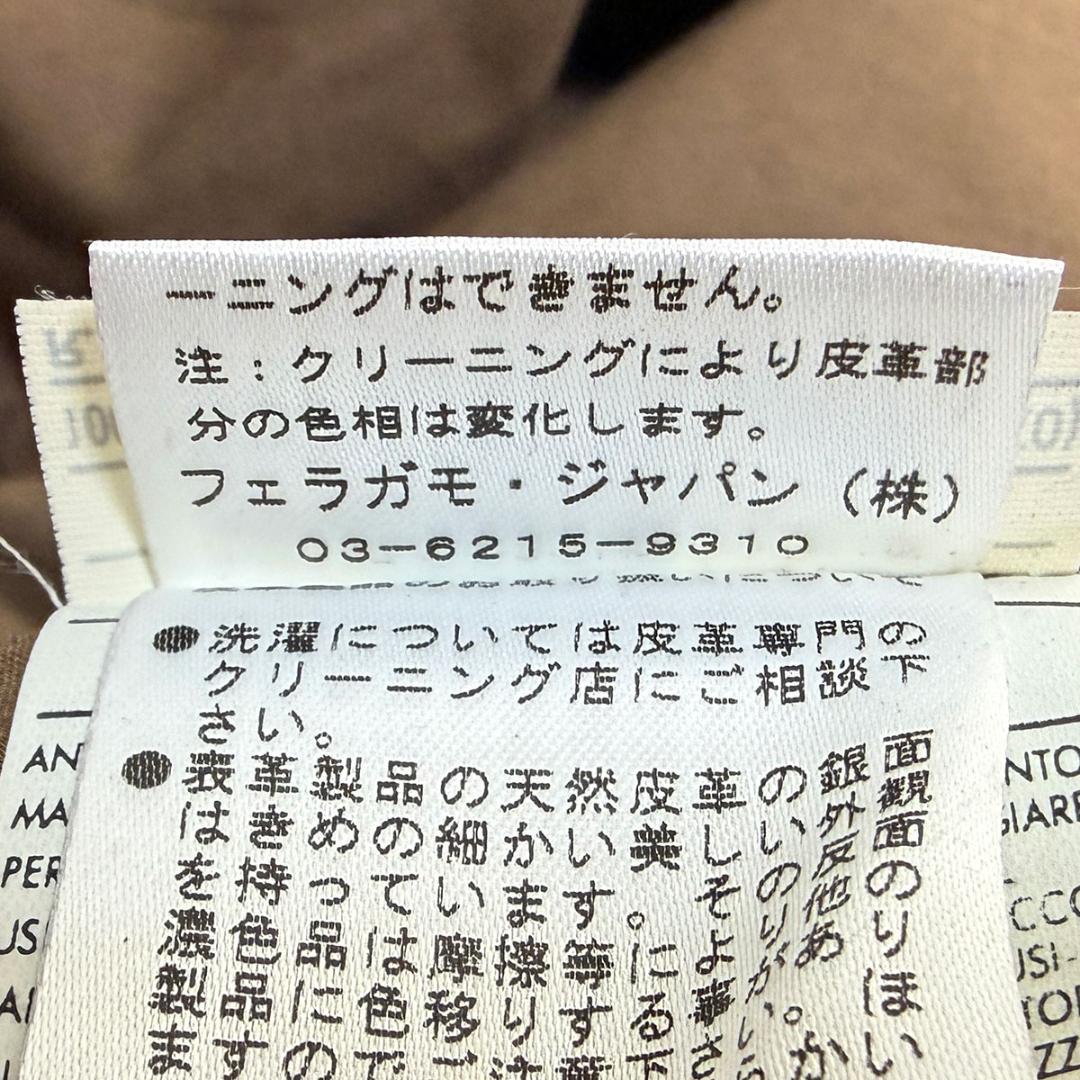 ーニングはできません。
注：クリーニングにより皮革部
分の色相は変化します。
フェラガモ・ジャパン（株）
03-6215-9310
●洗濯については皮革専門の
クリーニング店にご相談下
さい。
●表革製品の天然皮革の銀面
はきめの細かい美しい外観
を持っています。その反面
濃色品は摩擦等により他の
製品に色移りする事があり
ますので
AN
MA
PER
NTO
CCO
USI-
ZZ